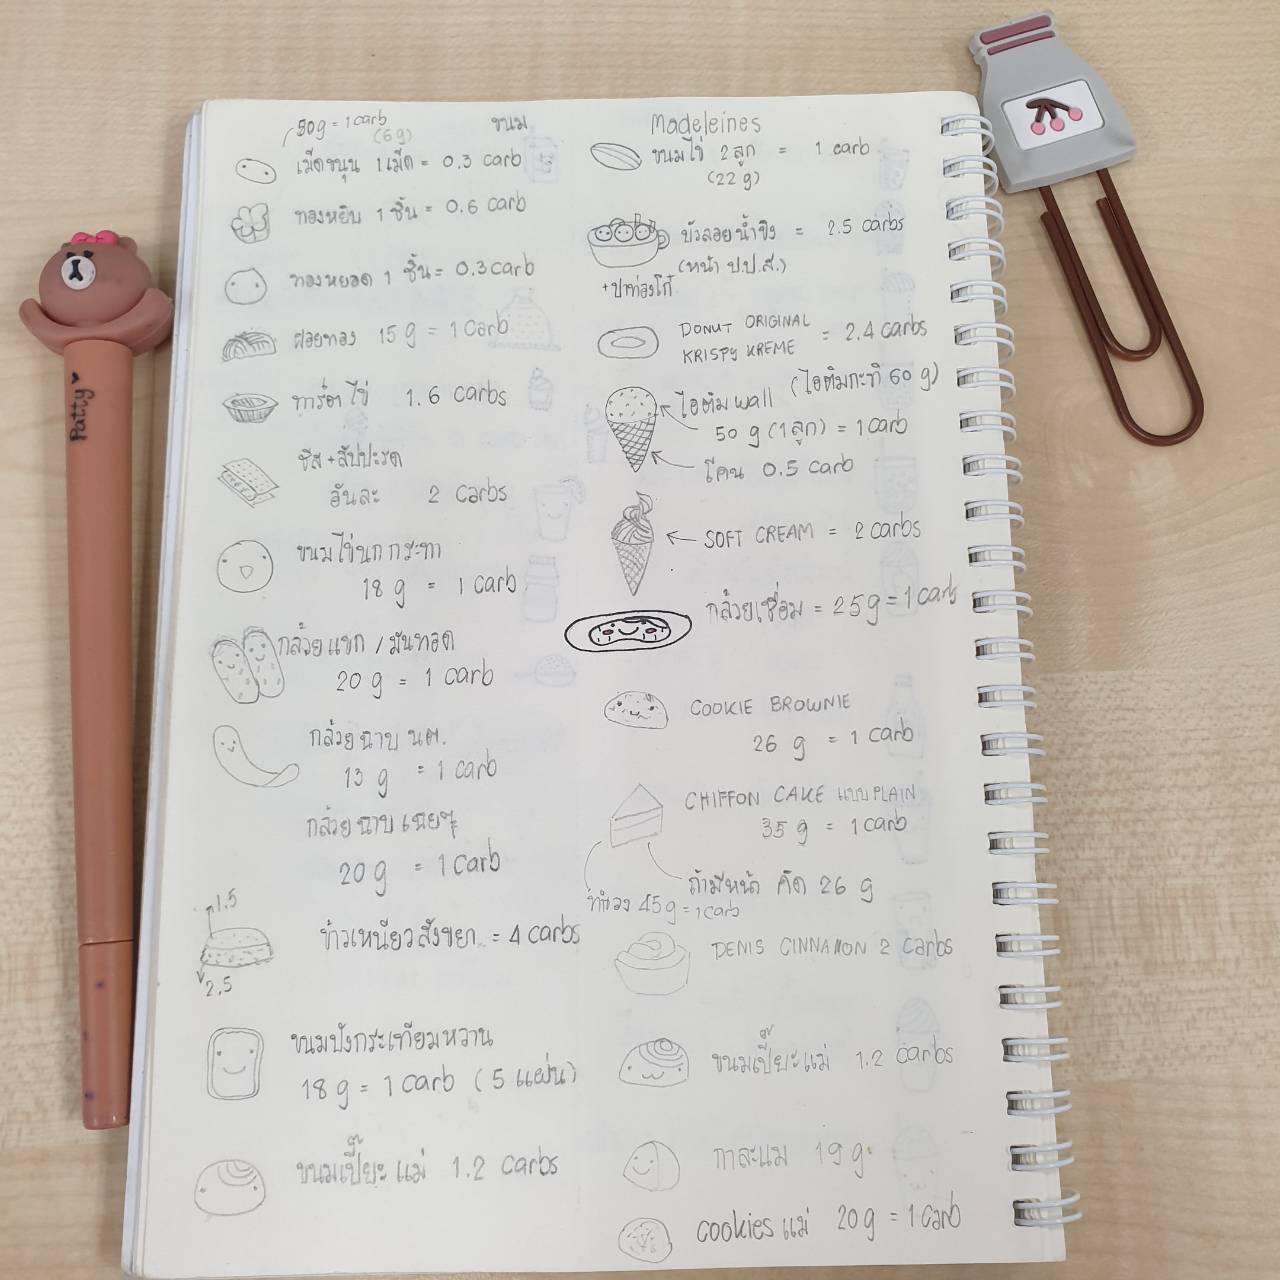 ขนม
50g = 1 carb
(6g)
เม็ดขนุน 1 เม็ด = 0.3 carb
ทองหยิบ 1 ชิ้น = 0.6 carb
ทองหยอด 1 ชิ้น = 0.3 carb
ฝอยทอง 15 g = 1 carb
ทาร์ตไข่ 1.6 carbs
ชีส + สัปปะรด
อันละ 2 carbs
ขนมไข่นกกระทา
18 g = 1 carb
กล้วยแขก / มันทอด
20 g = 1 carb
กล้วยฉาบ นต.
13 g = 1 carb
กล้วยฉาบเฉยๆ
20 g = 1 carb
1.5
ข้าวเหนียวสังขยา = 4 carbs
2.5
ขนมปังกระเทียมหวาน
18 g = 1 carb (5 แผ่น)
ขนมเปี๊ยะแม่ 1.2 carbs
Madeleines
ขนมไข่ 2 ลูก = 1 carb
(22 g)
บัวลอยน้ำขิง = 2.5 carbs
(หน้า ป.ป.ส.)
+ ปาท่องโก๋
DONUT ORIGINAL
KRISPY KREME = 2.4 carbs
ไอติม wall (ไอติมกะทิ 60 g)
50 g (1 ลูก) = 1 carb
โคน 0.5 carb
SOFT CREAM = 2 carbs
กล้วยเชื่อม = 25g = 1 carb
COOKIE BROWNIE
26 g = 1 carb
CHIFFON CAKE แบบ PLAIN
35 g = 1 carb
ถ้ามีหน้า คิด 26 g
ทำเอง 45g = 1 carb
DENIS CINNAMON 2 carbs
ขนมเปี๊ยะแม่ 1.2 carbs
กาละแม 19 g
cookies แม่ 20 g = 1 carb
Patty